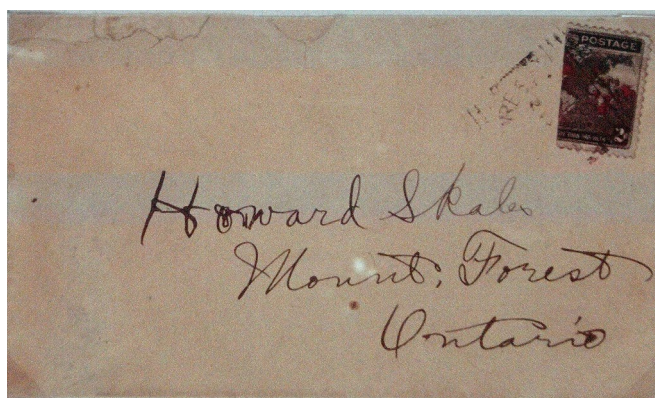 POSTAGE
3
Howard Skales
Mount. Forest
Ontario